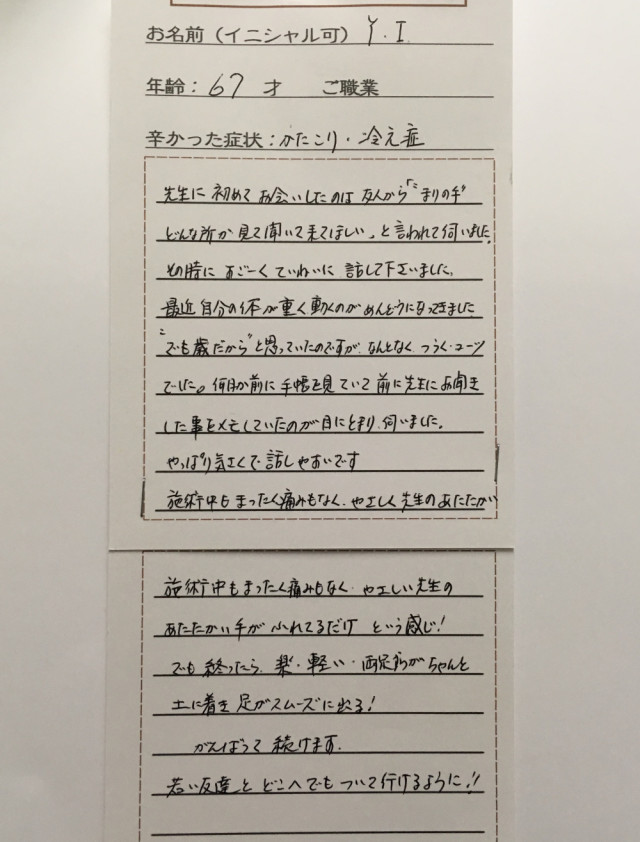 お名前（イニシャル可） Y.I.
年齢：67 才 ご職業
辛かった症状：かたこり・冷え症
先生に初めてお会いしたのは友人から"こまりの手"
どんな所か見て聞いて来てほしい」と言われて伺いました。
その時にすごーくていねいに話して下さいました。
最近自分の体が重く動くのがめんどうになってきました
"でも歳だから"と思っていたのですが、なんとなく、つうくユーツ
でした。何日か前に手帳を見ていて前に先生にお聞き
した事をメモしていたのが目にとまり、伺いました。
やっぱり気さくで話しやすいです
施術中もまったく痛みもなく、やさしく先生のあたたかい
施術中もまったく痛みもなく、やさしい先生の
あたたかい手がふれてるだけ という感じ!
でも終ったら、楽・軽い・両足がちゃんと
土に着き足がスムーズに出る!
がんばって続けます。
若い友達とどこへでもついて行けるように!!